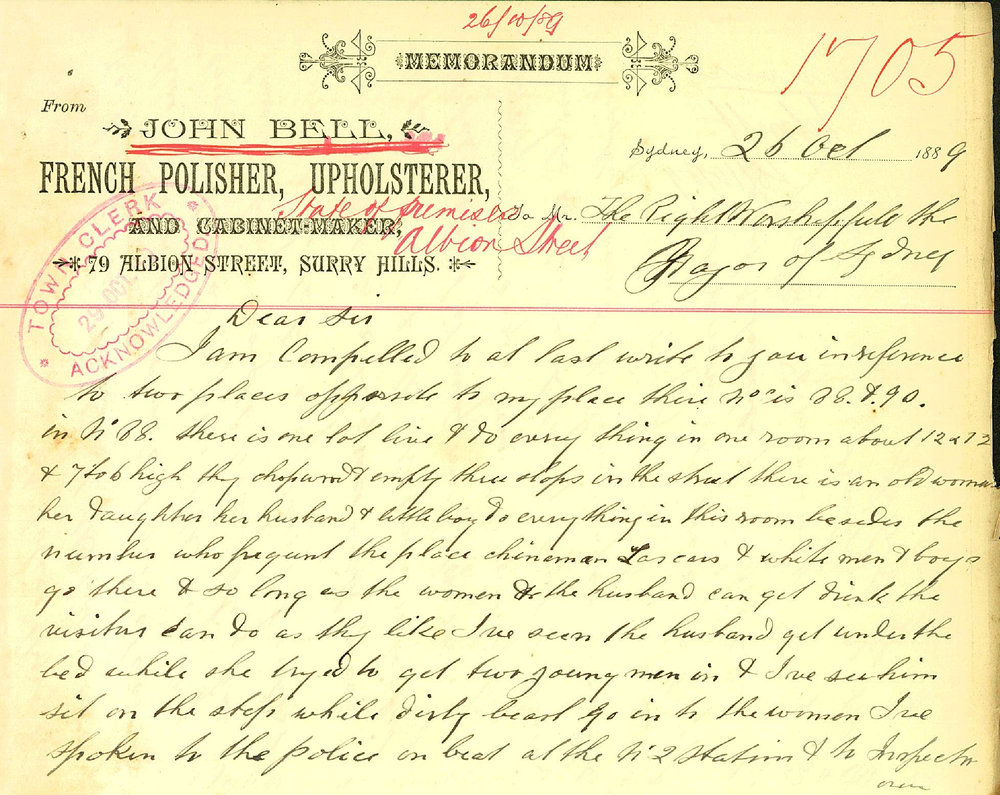 26/10/89
MEMORANDUM
1705
From
JOHN BELL,
FRENCH POLISHER, UPHOLSTERER,
AND CABINET-MAKER,
79 ALBION STREET, SURRY HILLS.
State of premises
Albion Street
TOWN CLERK
29 OCT
ACKNOWLEDGED
Sydney, 26 Oct 1889
To Mr. The Right Worshipfull the
Mayor of Sydney
Dear Sir
I am Compelled to at last write to you in reference
to two places opposite to my place there Nos is 88. & 90.
in No 88. there is one lot live & do every thing in one room about 12 x 12
& 7 to 8 high thy chop wood & empty there slops in the street there is an old woman
her daughter her husband & little boy do everything in this room besides the
number who frequent the place chinaman Lascars & white men & boys
go there & so long as the women & the husband can get drink the
visitors can do as thy like I've seen the husband get under the
bed while she tryed to get two young men in & I've see him
sit on the steps while dirty beast go in to the women I've
spoken to the police on beat at the No 2 Station & to Inspector
over